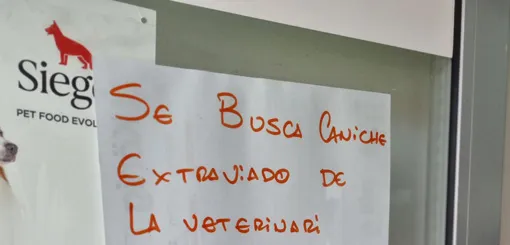 Siege
PET FOOD EVOL
SE BUSCA CANICHE
EXTRAVIADO DE
LA VETERINARI